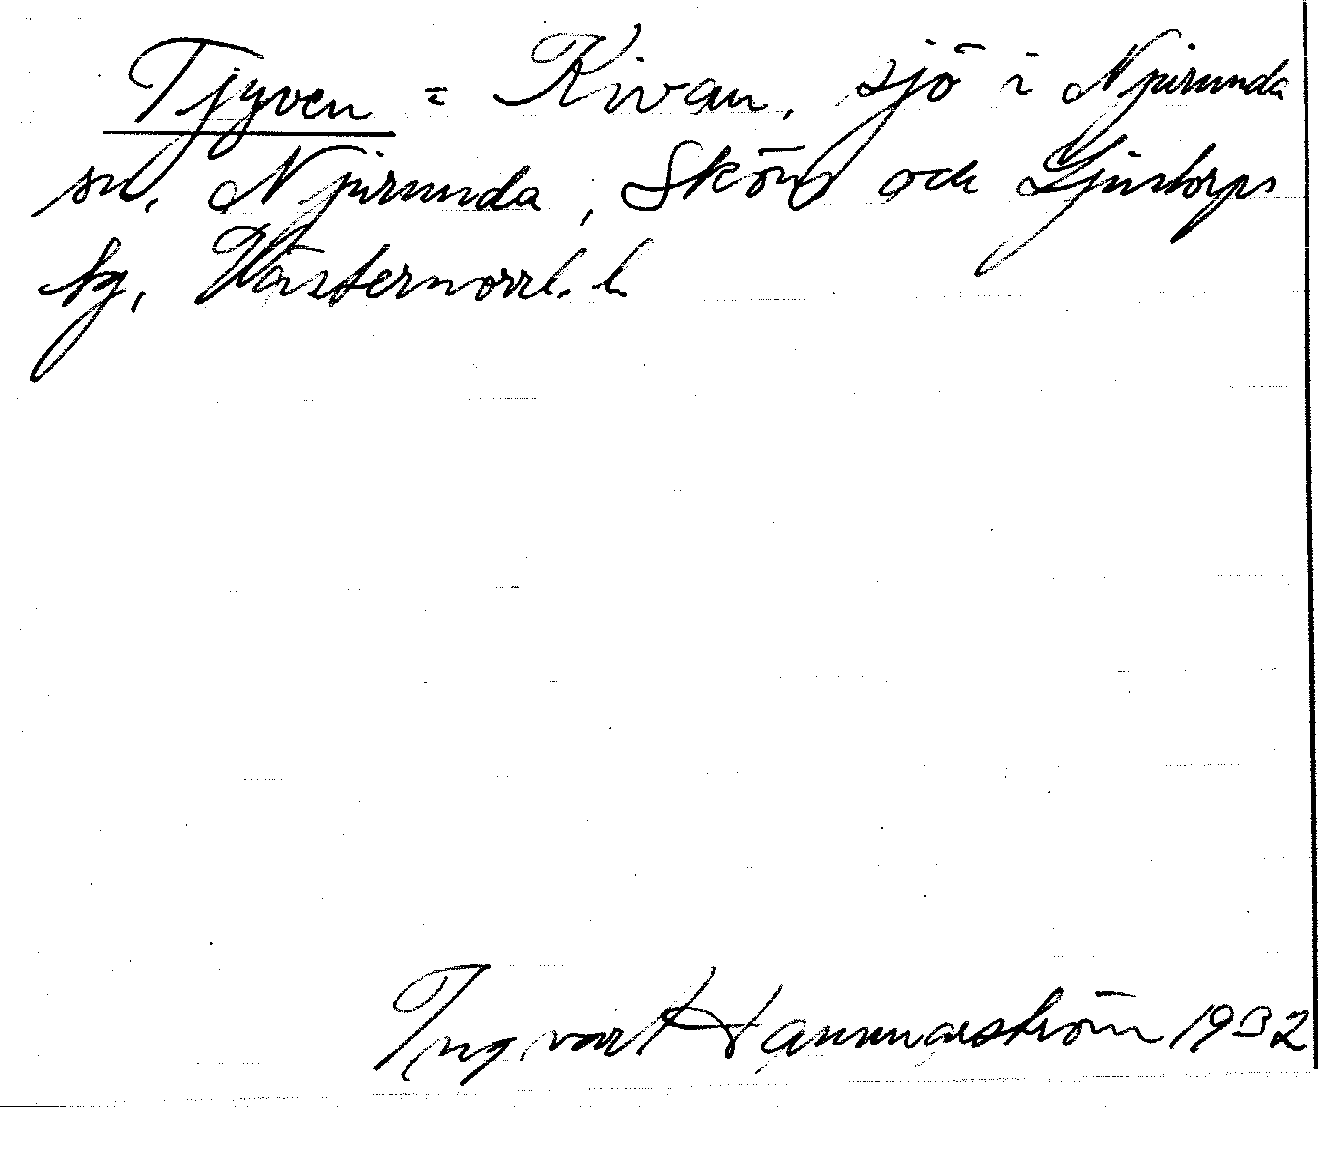 Tjyven = Kivan, sjö i Njurunda
sn, Njurunda, Sköns och Ljustorps
tg, Västernorrl. l.
Ingvar Hammarström 1932